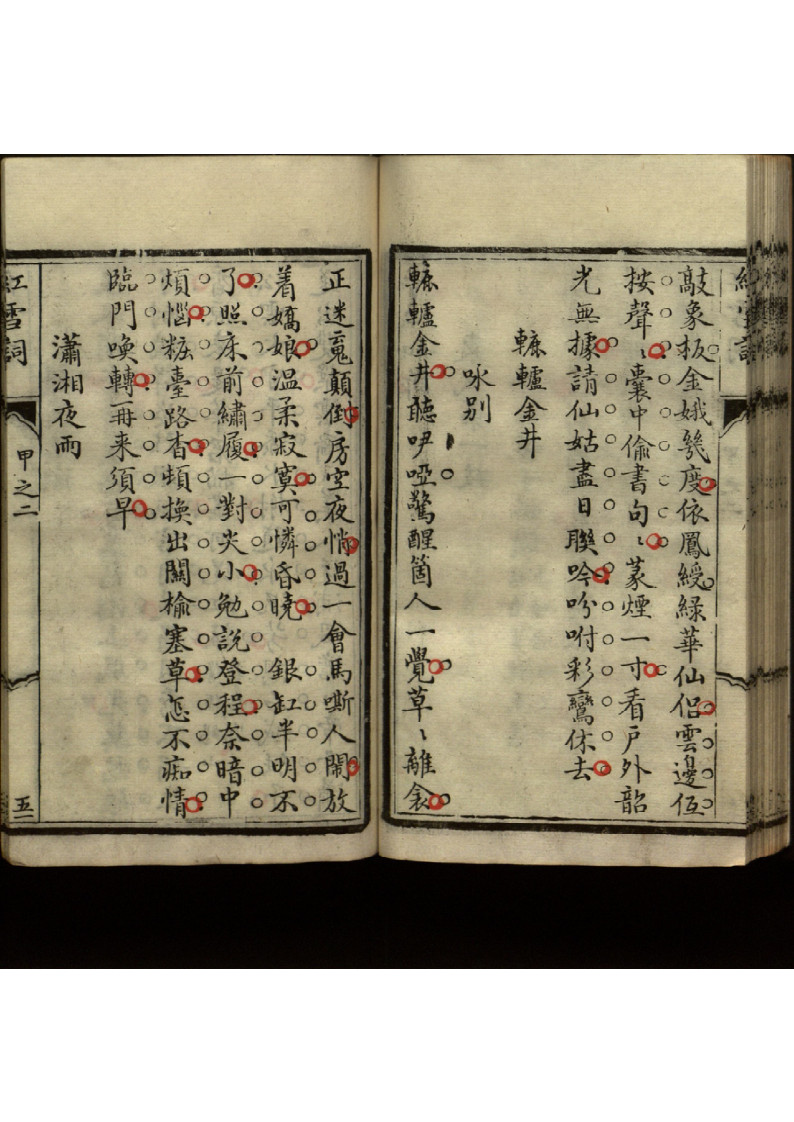 紅雪詞
敲象板金娥幾度依鳳綬緑華仙侣雲邊伍
按聲〻囊中偷書句〻篆煙一寸看戸外韶
光無據請仙姑盡日聮吟吩咐彩鸞休去
轆轤金井
咏别
轆轤金井聽咿啞驚醒箇人一覺草〻離衾
正迷䰟顛倒房空夜悄過一會馬嘶人閙放
着嬌娘温柔寂寞可憐昏曉　銀缸半明不
了照床前繡履一對尖小勉説登程奈暗中
煩惱粧臺路杳頓換出關榆塞草怎不痴情
臨門喚轉再来須早
瀟湘夜雨
紅雪詞
甲之二
五